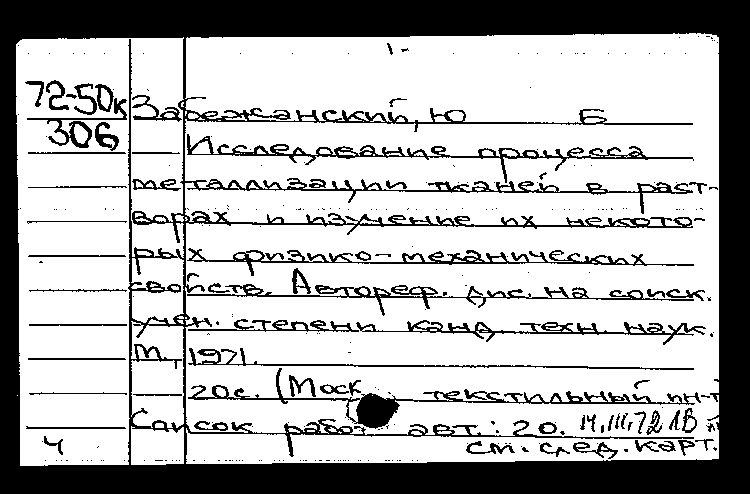 1-
72-50к Забежанский, Ю Б
306 Исследование процесса
металлизации тканей в раст-
ворах и изучение их некото-
рых физико-механических
свойств. Автореф. дис. на соиск.
учен. степени канд. техн. наук.
М., 1971.
20с. (Моск текстильный ин-т
Список работ авт.: 20. 14.III.72 ЛВ
ч см. след. карт.